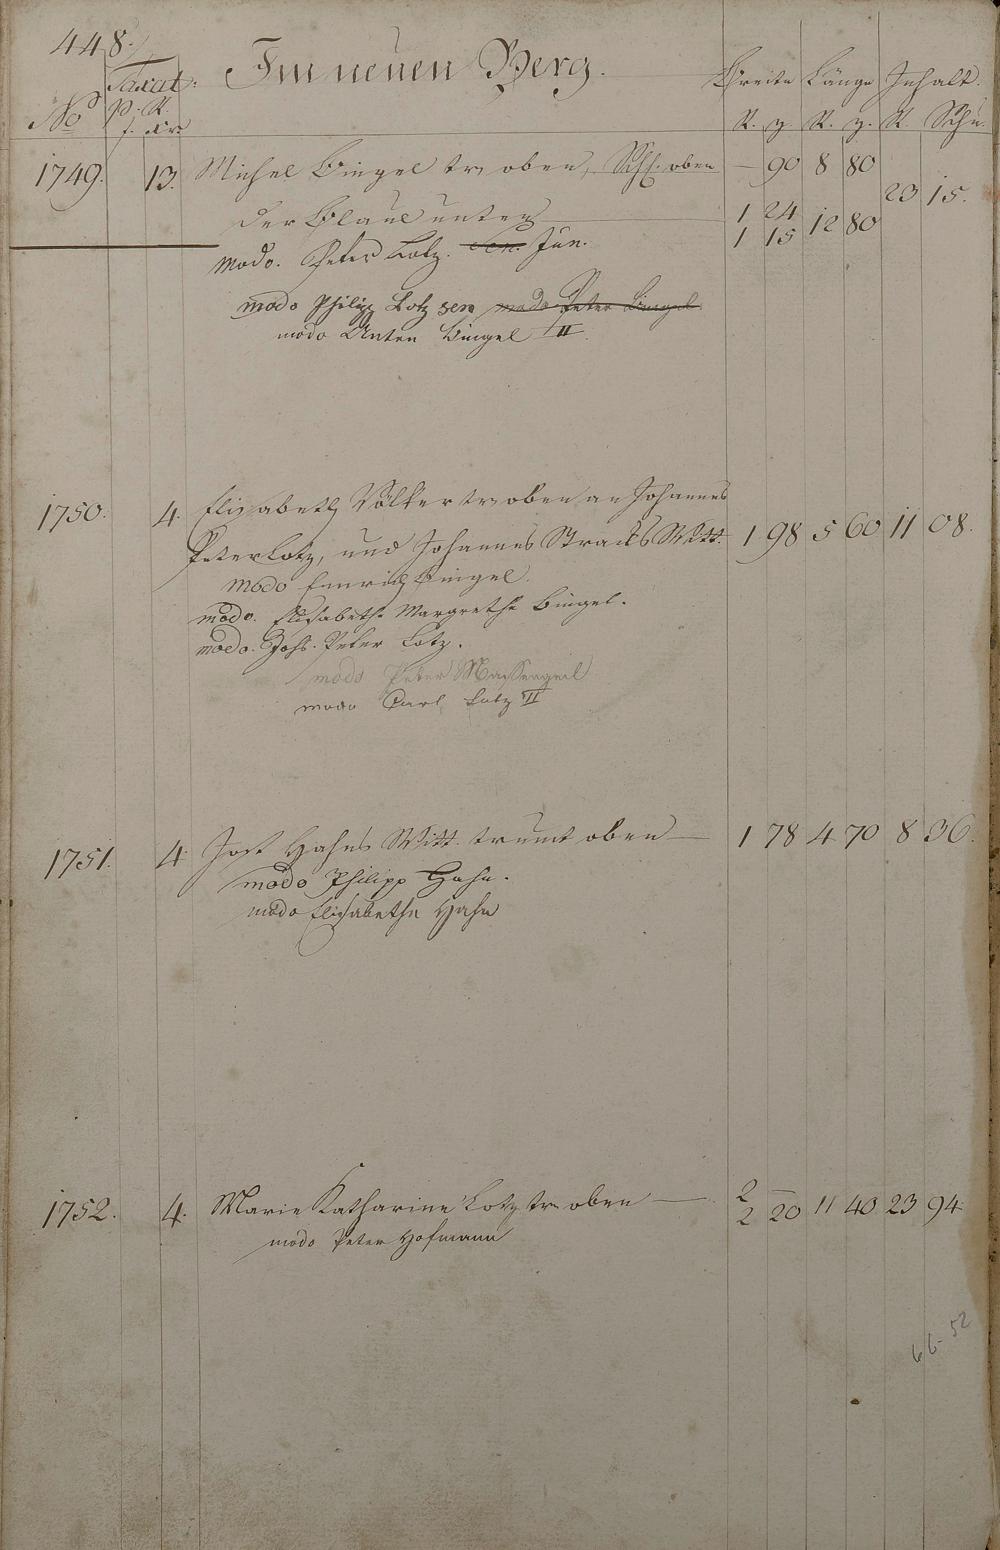 448.
Taxat: Im neuen Berg. Breite Länge Inhalt.
No p. R. R. z. R. z. R. Schu.
f. xr
1749. 13. Michel Bingel tr oben, Sch. oben — 90 8 80
23 15.
der Blaue unten 1 24 12 80
1 15
modo. Peter Lotz. sen. Jun.
modo Philipp Lotz sen modo Peter Bingel
modo Anton Bingel II
1750. 4. Elisabeth Völker tr oben an Johannes
Peter Lotz, und Johannes Stracks Witt. 1 98 5 60 11 08.
modo Emrich Bingel.
modo. Elisabetha Margretha Bingel.
modo. Johs. Peter Lotz.
modo Peter Massengeil
modo Carl Lotz II
1751. 4. Jost Hahns Witt. trumt oben — 1 78 4 70 8 36.
modo Philipp Hahn.
modo Elisabetha Hahn
1752. 4. Marie Katharine Lotz tr oben — 2 — 11 40 23 94.
2 20
modo Peter Hofmann
66-52